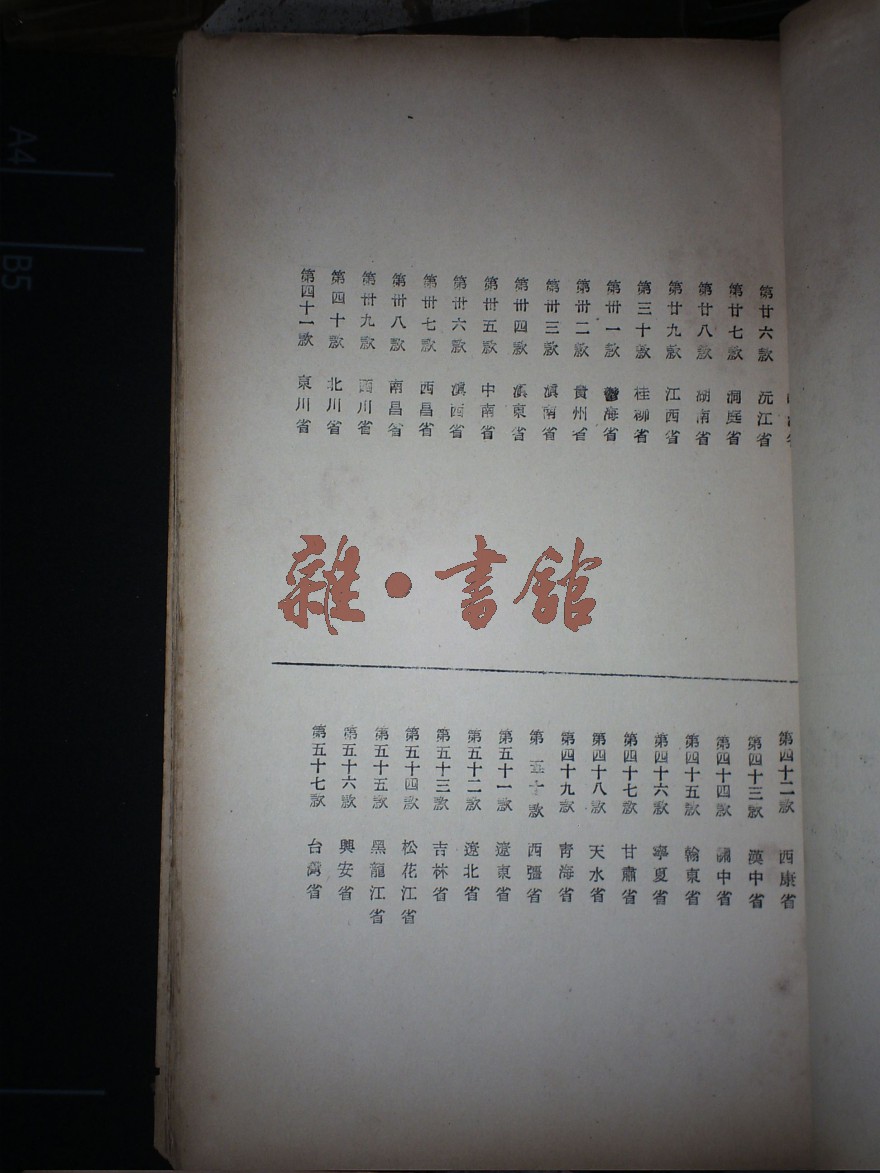 第廿六款　沅江省
第廿七款　洞庭省
第廿八款　湖南省
第廿九款　江西省
第三十款　桂柳省
第卅一款　鬱海省
第卅二款　貴州省
第卅三款　滇南省
第卅四款　滇東省
第卅五款　中南省
第卅六款　滇西省
第卅七款　西昌省
第卅八款　南昌省
第卅九款　西川省
第四十款　北川省
第四十一款　東川省
雜·書館
第四十二款　西康省
第四十三款　漢中省
第四十四款　關中省
第四十五款　翰東省
第四十六款　寧夏省
第四十七款　甘肅省
第四十八款　天水省
第四十九款　靑海省
第五十款　西疆省
第五十一款　遼東省
第五十二款　遼北省
第五十三款　吉林省
第五十四款　松花江省
第五十五款　黑龍江省
第五十六款　興安省
第五十七款　台灣省
A4
B5